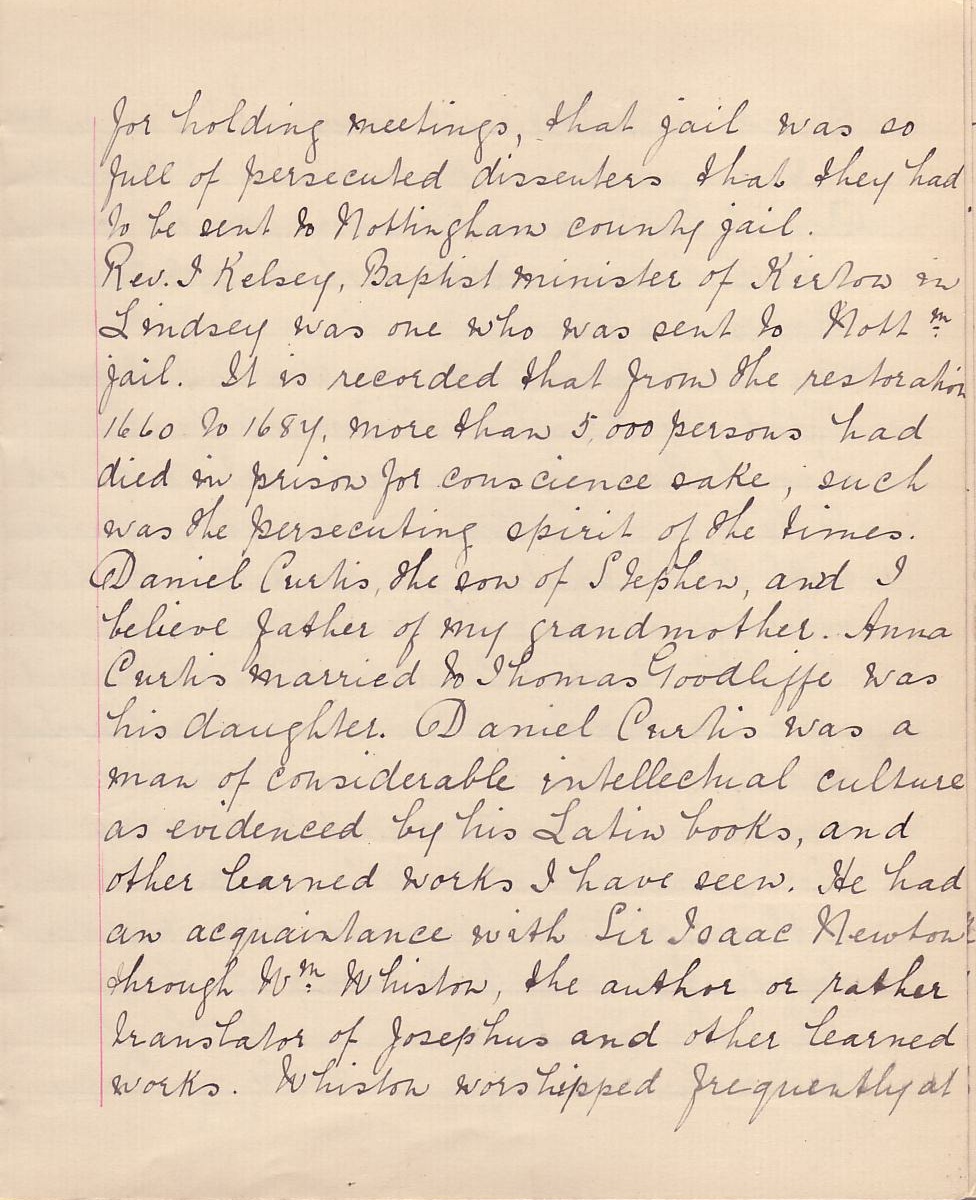 for holding meetings, that jail was so
full of persecuted dissenters that they had
to be sent to Nottingham county jail.
Rev. I Kelsey, Baptist minister of Kirton in
Lindsey was one who was sent to Nott m
jail. It is recorded that from the restoration
1660 to 1684, more than 5,000 persons had
died in prison for conscience sake, such
was the persecuting spirit of the times.
Daniel Curtis, the son of Stephen, and I
believe father of my grandmother. Anna
Curtis married to Thomas Goodliffe was
his daughter. Daniel Curtis was a
man of considerable intellectual culture
as evidenced by his Latin books, and
other learned works I have seen. He had
an acquaintance with Sir Isaac Newton
through Wm Whiston, the author or rather
translator of Josephus and other learned
works. Whiston worshipped frequently at